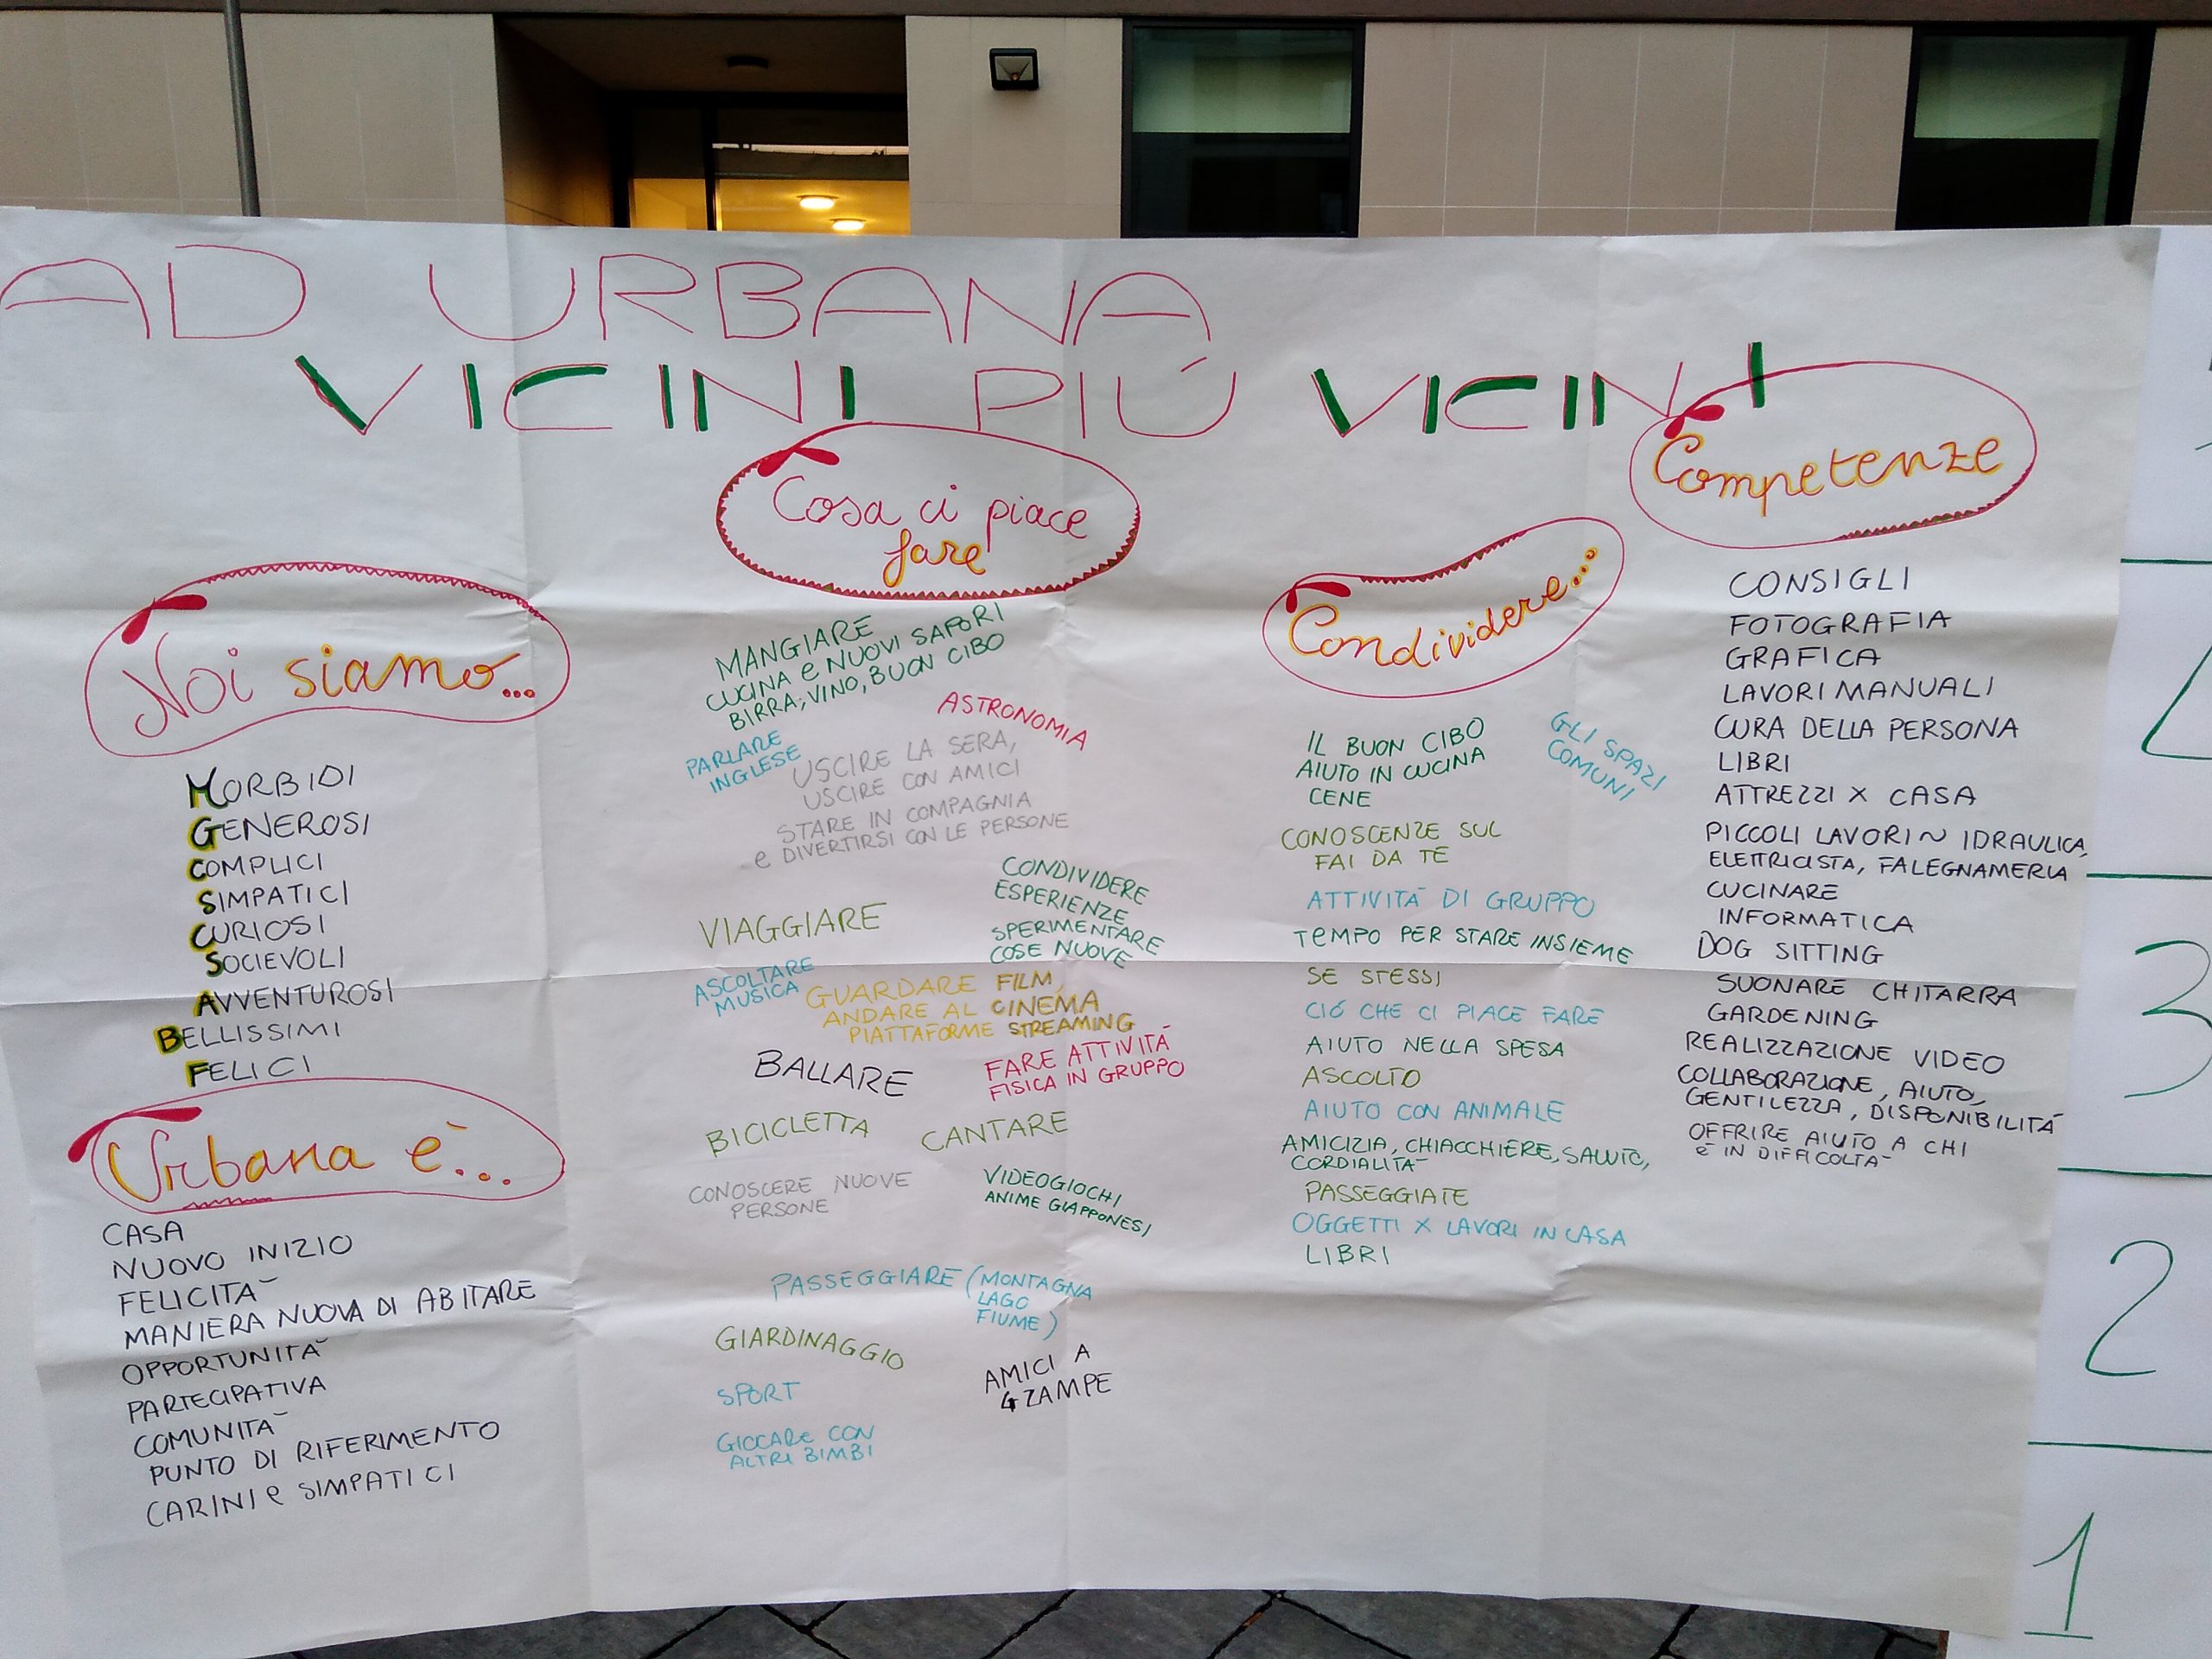 AD URBANA
VICINI PIÚ VICINI
Noi siamo...
MORBIDI
GENEROSI
COMPLICI
SIMPATICI
CURIOSI
SOCIEVOLI
AVVENTUROSI
BELLISSIMI
FELICI
Urbana è...
CASA
NUOVO INIZIO
FELICITÀ
MANIERA NUOVA DI ABITARE
OPPORTUNITÀ
PARTECIPATIVA
COMUNITÀ
PUNTO DI RIFERIMENTO
CARINI e SIMPATICI
Cosa ci piace
fare
MANGIARE
CUCINA e NUOVI SAPORI
BIRRA, VINO, BUON CIBO
ASTRONOMIA
PARLARE
INGLESE
USCIRE LA SERA,
USCIRE CON AMICI
STARE IN COMPAGNIA
e DIVERTIRSI CON LE PERSONE
CONDIVIDERE
ESPERIENZE
SPERIMENTARE
COSE NUOVE
VIAGGIARE
ASCOLTARE
MUSICA
GUARDARE FILM,
ANDARE AL CINEMA
PIATTAFORME STREAMING
BALLARE
FARE ATTIVITÁ
FISICA IN GRUPPO
BICICLETTA
CANTARE
CONOSCERE NUOVE
PERSONE
VIDEOGIOCHI
ANIME GIAPPONESI
PASSEGGIARE (MONTAGNA
LAGO
FIUME)
GIARDINAGGIO
AMICI A
4 ZAMPE
SPORT
GIOCARE CON
ALTRI BIMBI
Condividere...
IL BUON CIBO
AIUTO IN CUCINA
CENE
GLI SPAZI
COMUNI
CONOSCENZE SUL
FAI DA TE
ATTIVITÁ DI GRUPPO
TEMPO PER STARE INSIEME
SE STESSI
CIÓ CHE CI PIACE FARE
AIUTO NELLA SPESA
ASCOLTO
AIUTO CON ANIMALE
AMICIZIA, CHIACCHIERE, SALUTO,
CORDIALITÀ
PASSEGGIATE
OGGETTI X LAVORI IN CASA
LIBRI
Competenze
CONSIGLI
FOTOGRAFIA
GRAFICA
LAVORI MANUALI
CURA DELLA PERSONA
LIBRI
ATTREZZI X CASA
PICCOLI LAVORI ~ IDRAULICA,
ELETTRICISTA, FALEGNAMERIA
CUCINARE
INFORMATICA
DOG SITTING
SUONARE CHITARRA
GARDENING
REALIZZAZIONE VIDEO
COLLABORAZIONE, AIUTO,
GENTILEZZA, DISPONIBILITÁ
OFFRIRE AIUTO A CHI
È IN DIFFICOLTÀ
3
2
1